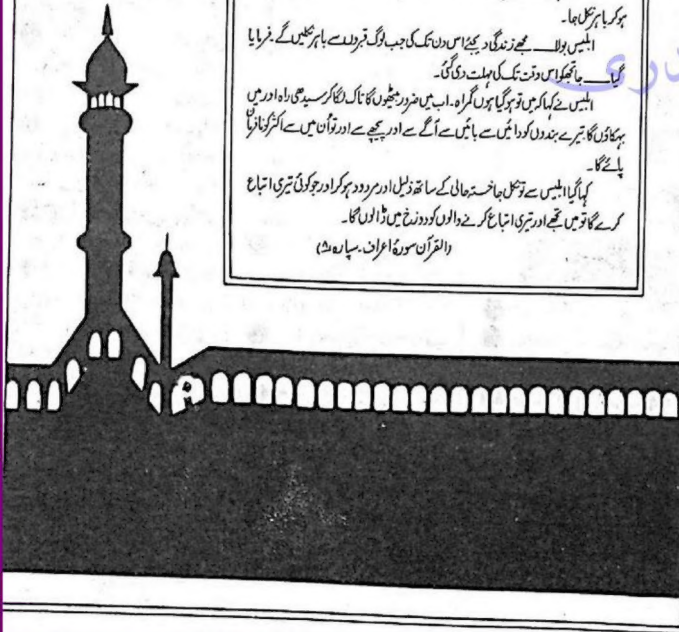 ہوکر باہر نکل جا۔
ابلیس بولا ــــ مجھے زندگی دیجئے اس دن تک کی جب لوگ قبروں سے باہر نکلیں گے۔ فرمایا
گیا ــــ جا تجھکو اس وقت تک کی مہلت دی گئی۔
ابلیس نے کہا کہ میں تو ہوگیا ہوں گمراہ۔ اب میں ضرور بیٹھوں گا تاک لگا کر سیدھی راہ اور میں
بہکاؤں گا تیرے بندوں کو دائیں سے بائیں سے آگے سے اور پیچھے سے اور تو اُن میں سے اکثر کو نافرمان
پائے گا۔
کہا گیا ابلیس سے تو نکل جا خستہ حالی کے ساتھ ذلیل اور مردود ہوکر اور جو کوئی تیری اتباع
کرے گا تو میں تجھے اور تیری اتباع کرنے والوں کو دوزخ میں ڈالوں گا۔
(القرآن سورۂ اعراف۔ سپارہ ۸)